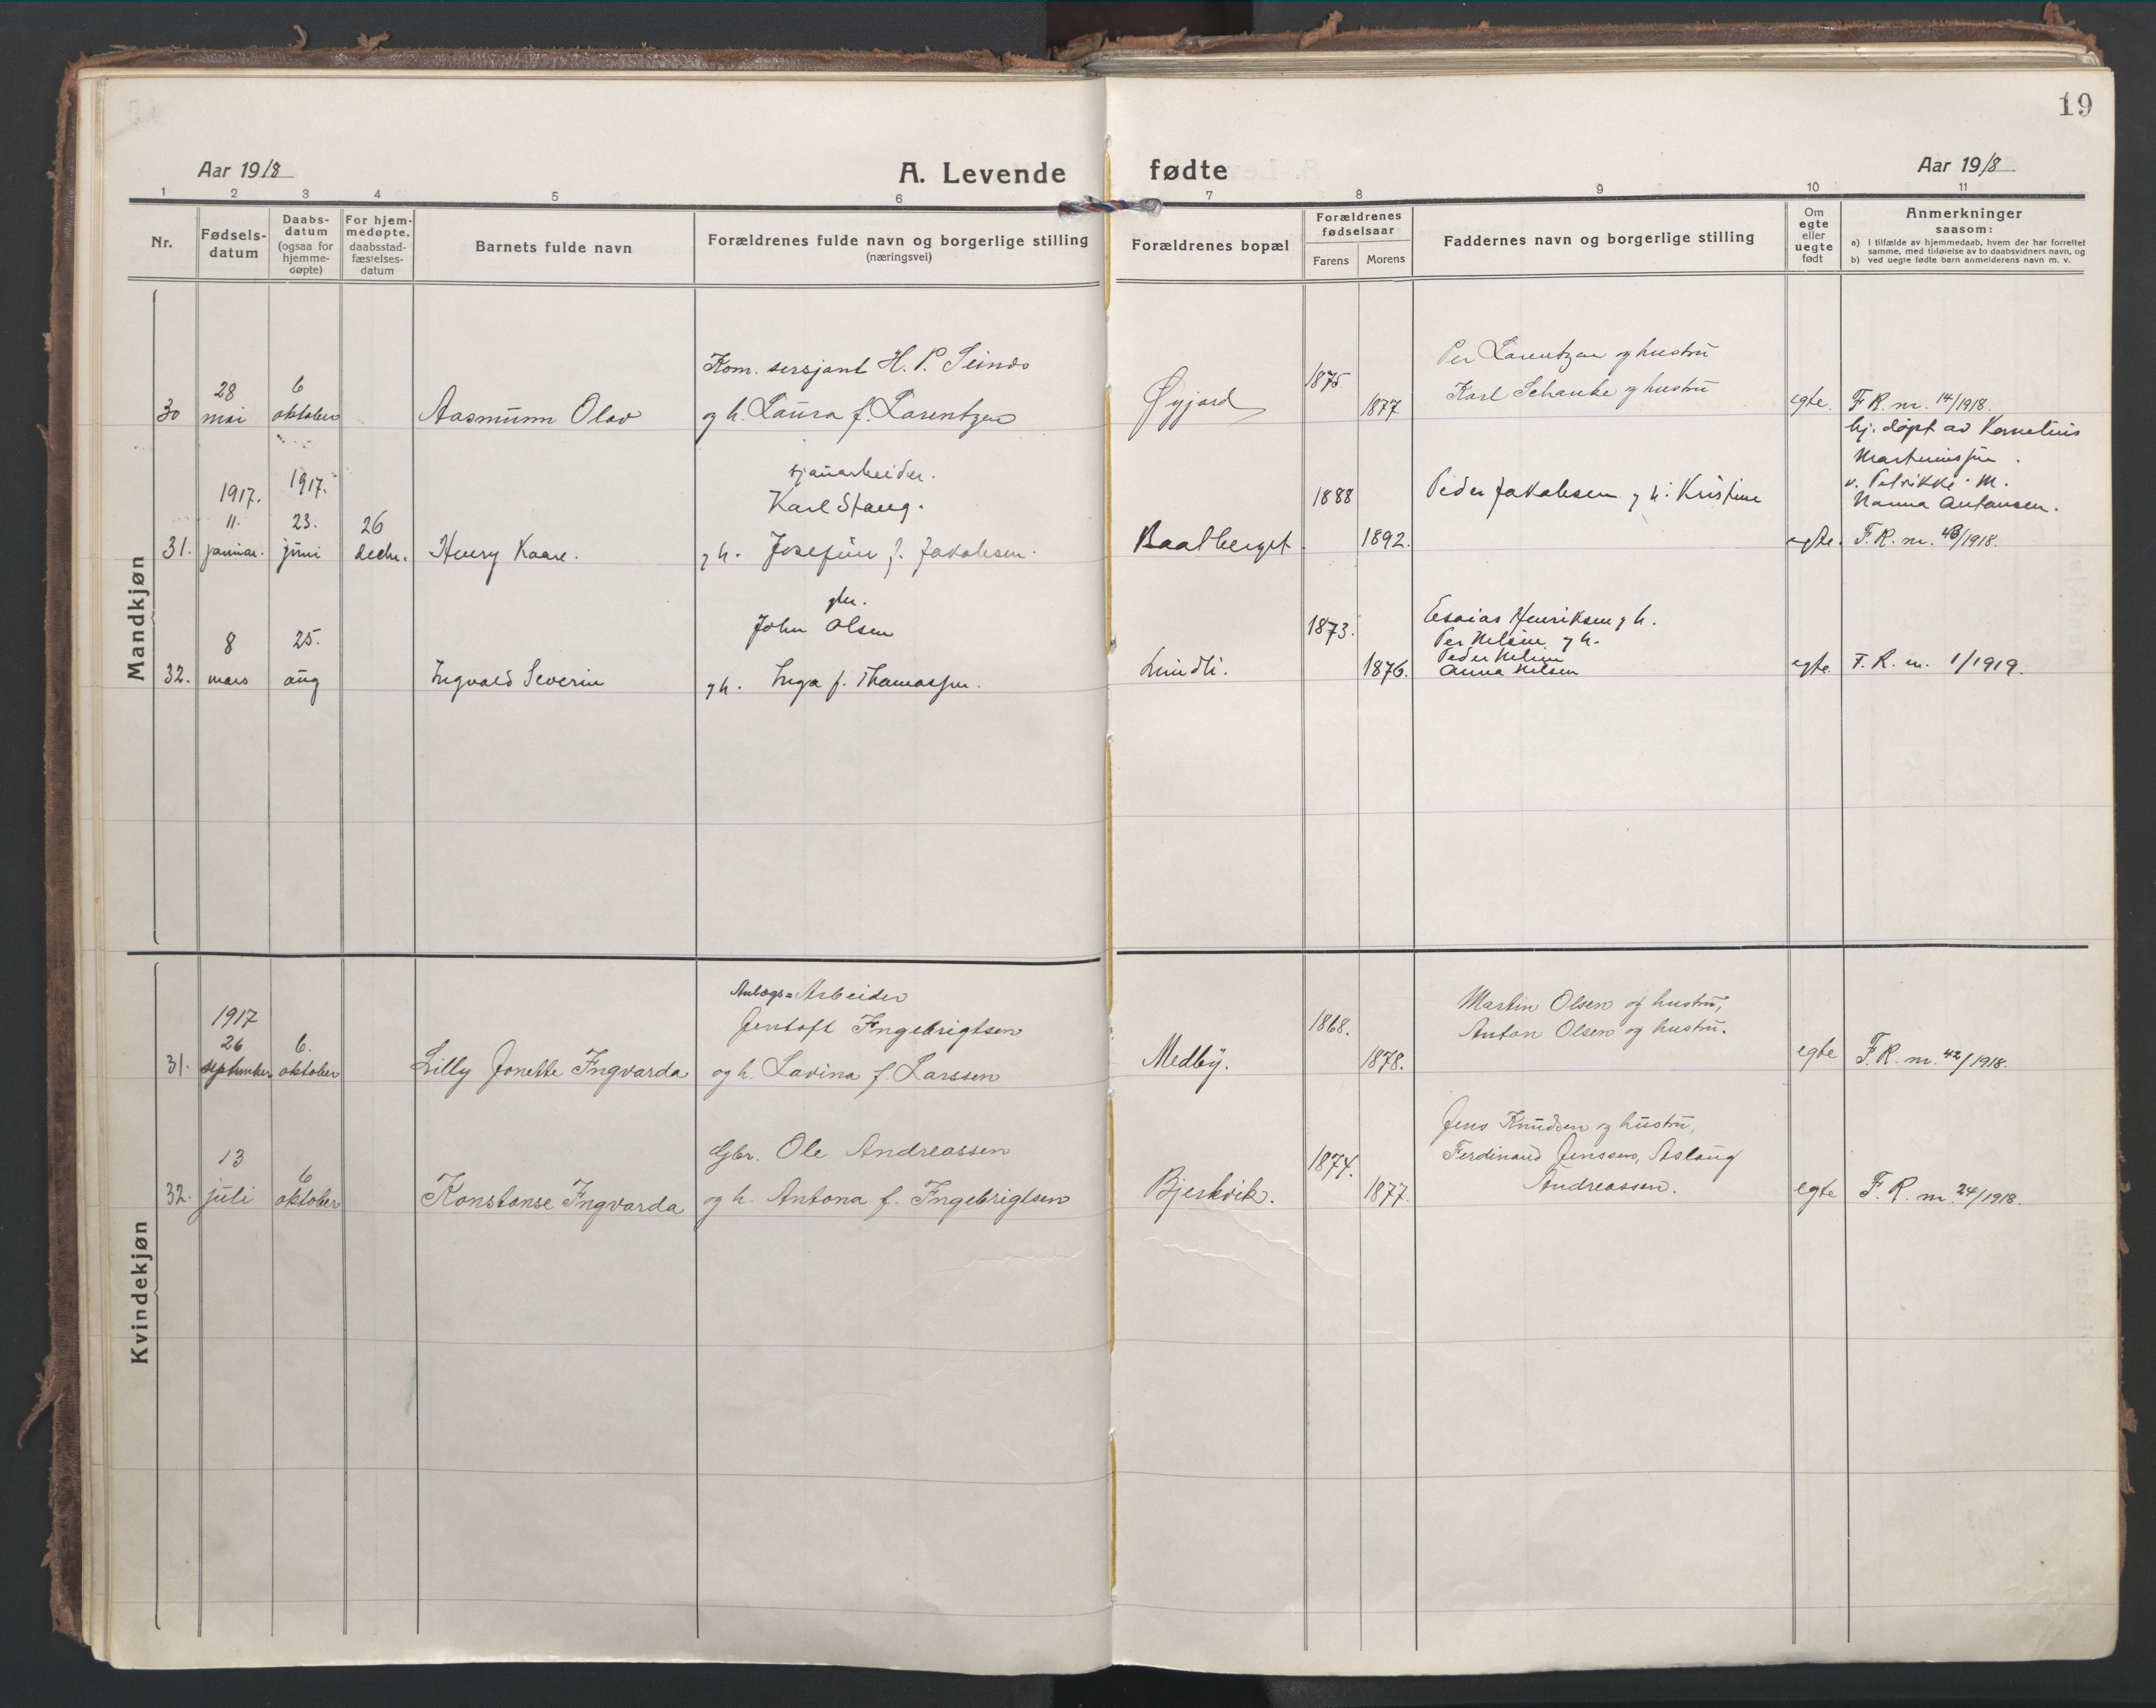 19
Aar 1918
A. Levende fødte
Aar 1918
1 2 3 4 5 6 7 8 9 10 11
Nr.
Fødsels-
datum
Daabs-
datum
(ogsaa for
hjemme-
døpte)
For hjem-
medøpte,
daabsstad-
fæstelses-
datum
Barnets fulde navn
Forældrenes fulde navn og borgerlige stilling
(næringsvei)
Forældrenes bopæl
Forældrenes
fødselsaar
Farens
Morens
Faddernes navn og borgerlige stilling
Om
egte
eller
uegte
født
Anmerkninger
saasom:
a) i tilfælde av hjemmedaab, hvem der har forrettet
samme, med tilføielse av to daabsvidners navn, og
b) ved uegte fødte barn anmelderens navn m. v.
Mandkjøn
30
28
mai
6
oktober
Aasmunn Olav
Kom. sersjant H. P. Seines
og h. Laura f. Larentzen
Øyjord
1875.
1877
Per Larentzen og hustru
Karl Schanke og hustru
egte.
F. R. nr. 14/1918.
31.
1917.
11.
januar.
1917.
23.
juni
26
decbr.
Henry Kaare.
sjauarbeider.
Karl Stang.
g h. Josefine f. Jakobsen.
Baatberget.
1888
1892.
Peder Jakobsen g h. Kristine
egte.
hj. døpt av Kornelius
Martinussen.
v. Petrikke M.
Nanna Antonsen.
F. R. nr. 43/1918.
32.
8
mars
25.
aug
Ingvald Severin
gbr.
John Olsen
g h. Inga f. Thomassen.
Lundli.
1873.
1876.
Esaias Henriksen g h.
Per Nilsen g h.
Peder Nilsen
Anna Nilsen
egte.
F. R. nr. 1/1919.
Kvindekjøn
31.
1917
26
september
6.
oktober
Lilly Jonette Ingvarda
Anlægs=Arbeider
Jentoft Ingebrigtsen
og h. Lavina f. Larssen
Medby.
1868.
1878.
Martin Olsen og hustru,
Anton Olsen og hustru.
egte
F. R. nr. 42/1918.
32.
13
juli
6
oktober
Konstanse Ingvarda
Gbr. Ole Andreassen
og h. Antona f. Ingebrigtsen
Bjerkvik.
1874.
1877.
Jens Knudsen og hustru,
Ferdinand Jenssen, Aslaug
Andreassen.
egte
F. R. nr. 24/1918.